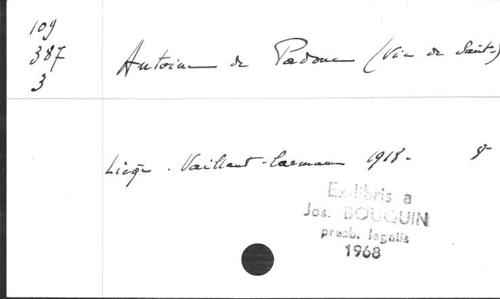 109
387
3
Antoine de Padoue (Vie de Saint-)
Liège. Vaillant-Carmanne 1918- 8°
Ex-libris a
Jos. BOUQUIN
presb. legolis
1968